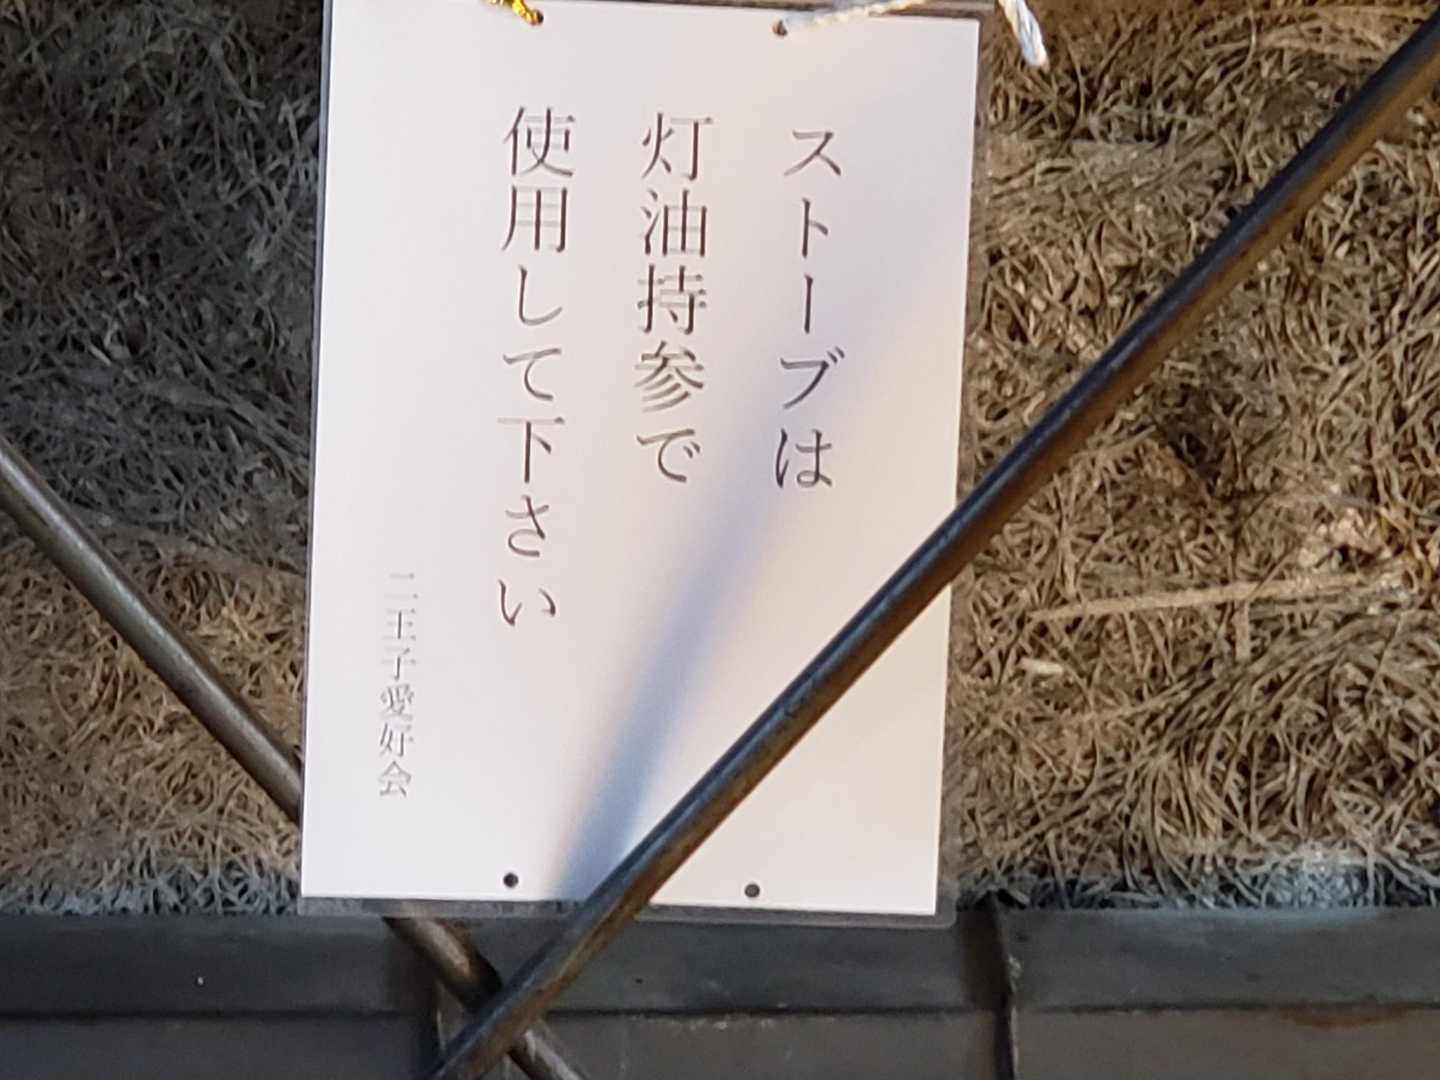 ストーブは
灯油持参で
使用して下さい
二王子愛好会